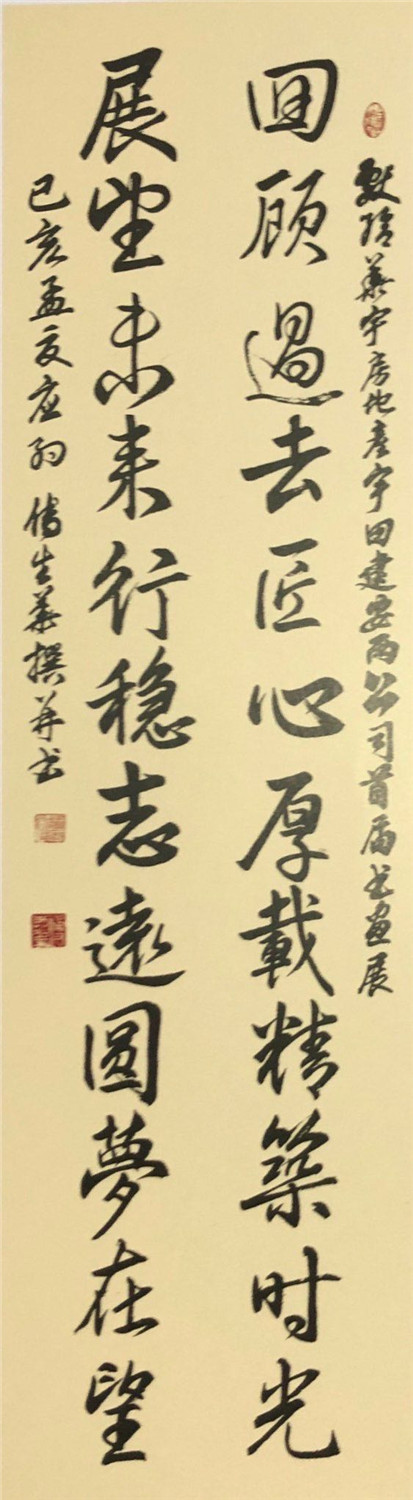 华宇房地产宇田建安两公司首届书画展
回顾过去匠心厚載精築时光
展望未来行稳志遠圆夢在望
己亥孟夏应约 傅生华撰并书